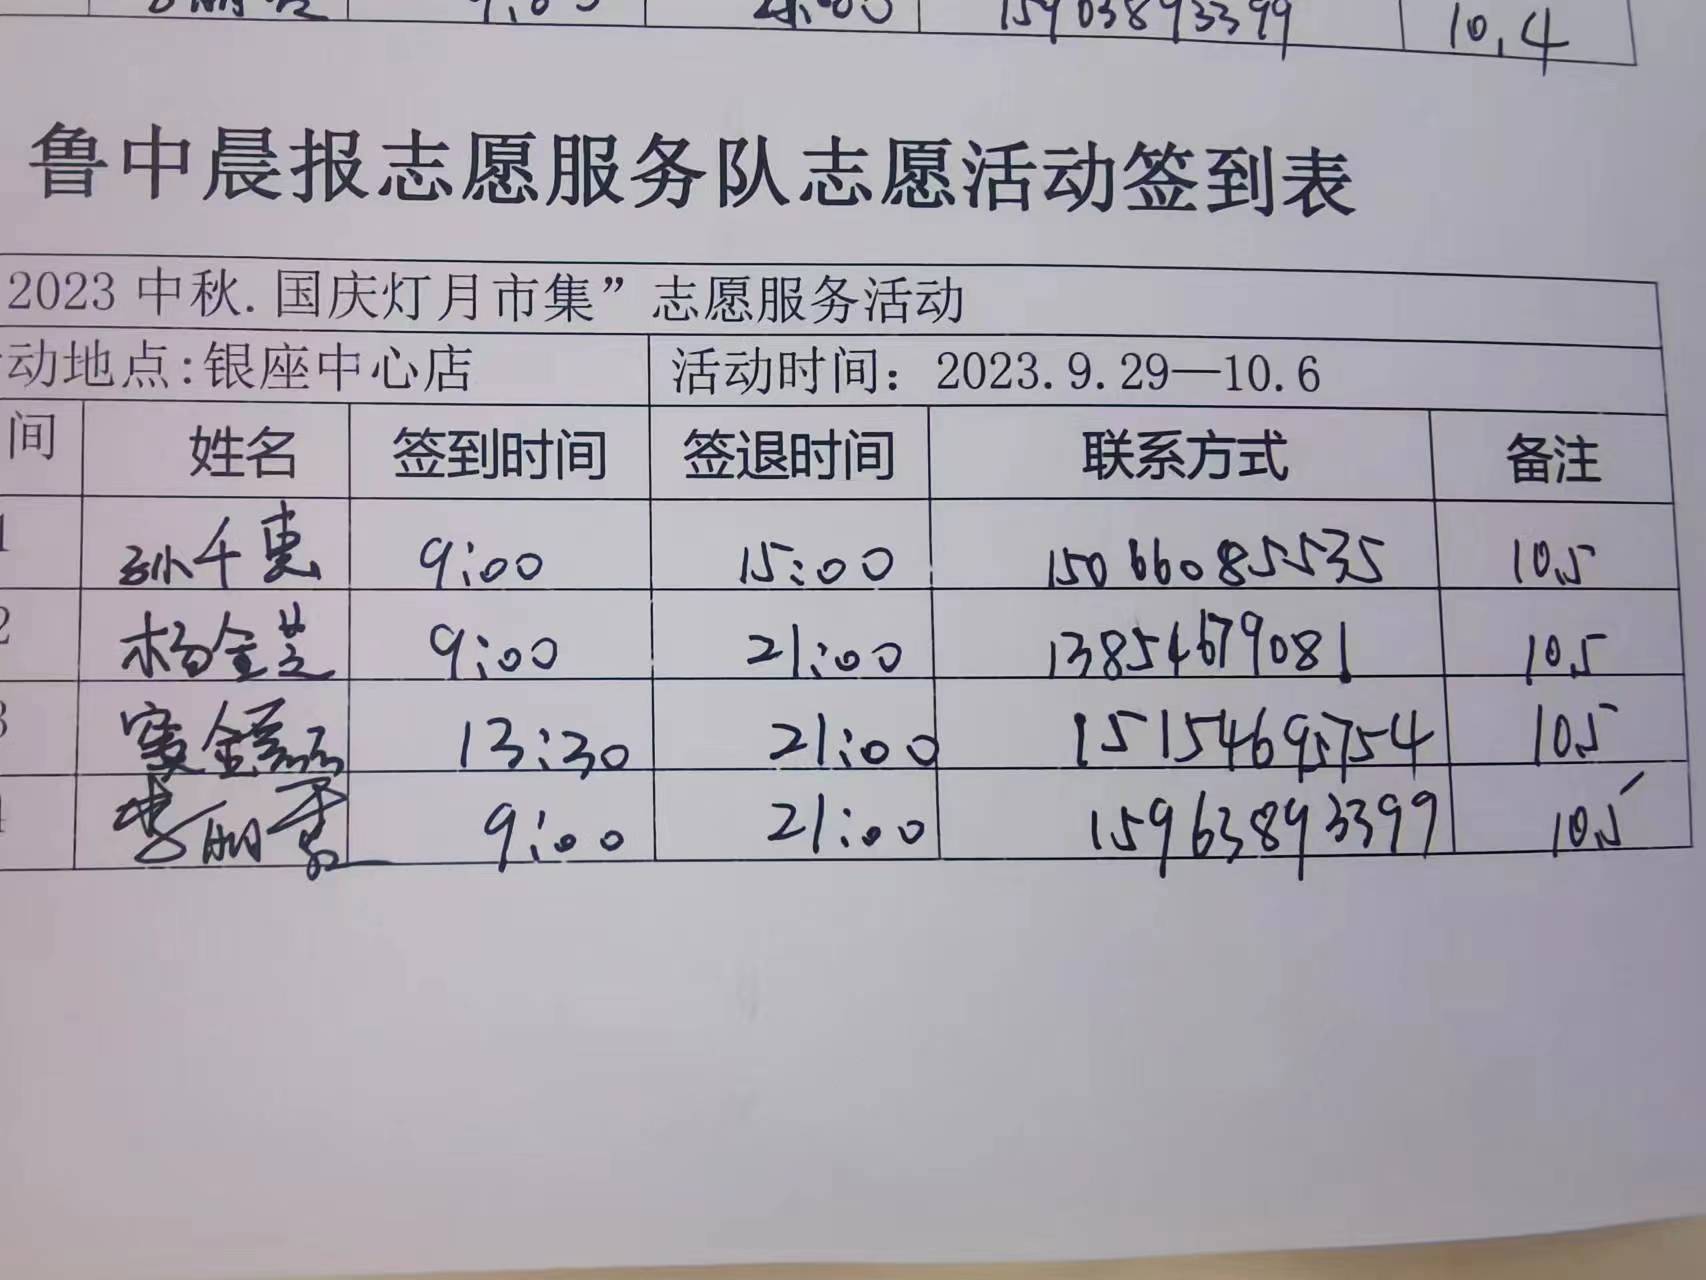 15963893399 10.4
鲁中晨报志愿服务队志愿活动签到表
2023 中秋.国庆灯月市集”志愿服务活动
动地点:银座中心店 活动时间：2023.9.29—10.6
间 姓名 签到时间 签退时间 联系方式 备注
1 孙千惠 9:00 15:00 15066085535 10.5
2 杨金芝 9:00 21:00 13854679081 10.5
3 13:30 21:00 15154695754 10.5
4 9:00 21:00 15963893399 10.5